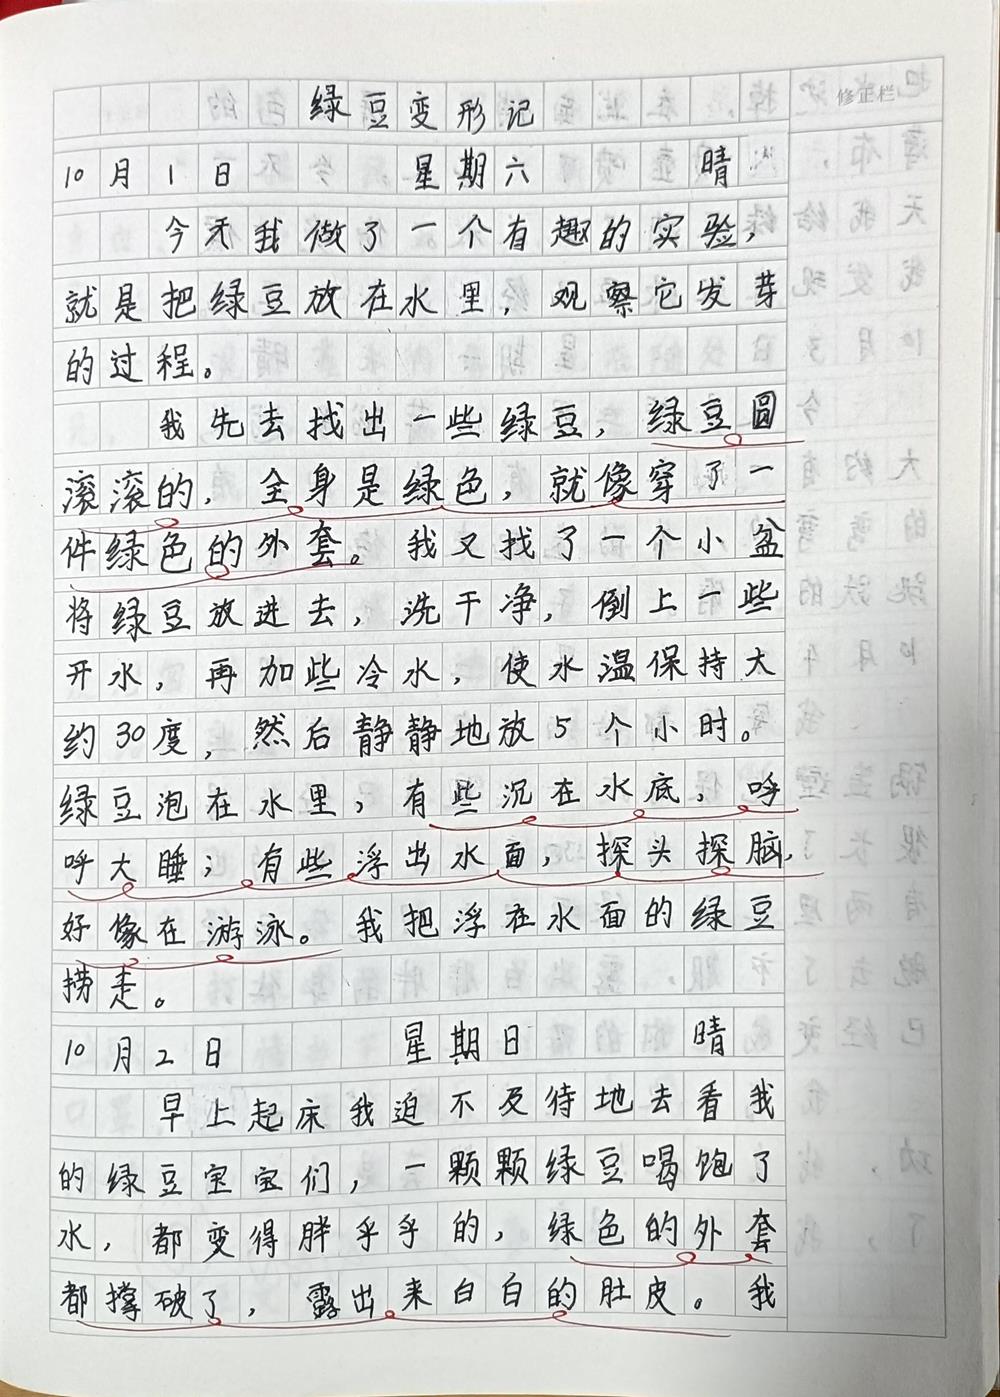 绿豆变形记
修正栏
10月1日 星期六 晴
今天我做了一个有趣的实验,
就是把绿豆放在水里,观察它发芽
的过程。
我先去找出一些绿豆,绿豆圆
滚滚的,全身是绿色,就像穿了一
件绿色的外套。我又找了一个小盆
将绿豆放进去,洗干净,倒上一些
开水,再加些冷水,使水温保持大
约30度,然后静静地放5个小时。
绿豆泡在水里,有些沉在水底,呼
呼大睡;有些浮出水面,探头探脑,
好像在游泳。我把浮在水面的绿豆
捞走。
10月2日 星期日 晴
早上起床我迫不及待地去看我
的绿豆宝宝们,一颗颗绿豆喝饱了
水,都变得胖乎乎的,绿色的外套
都撑破了,露出来白白的肚皮。我